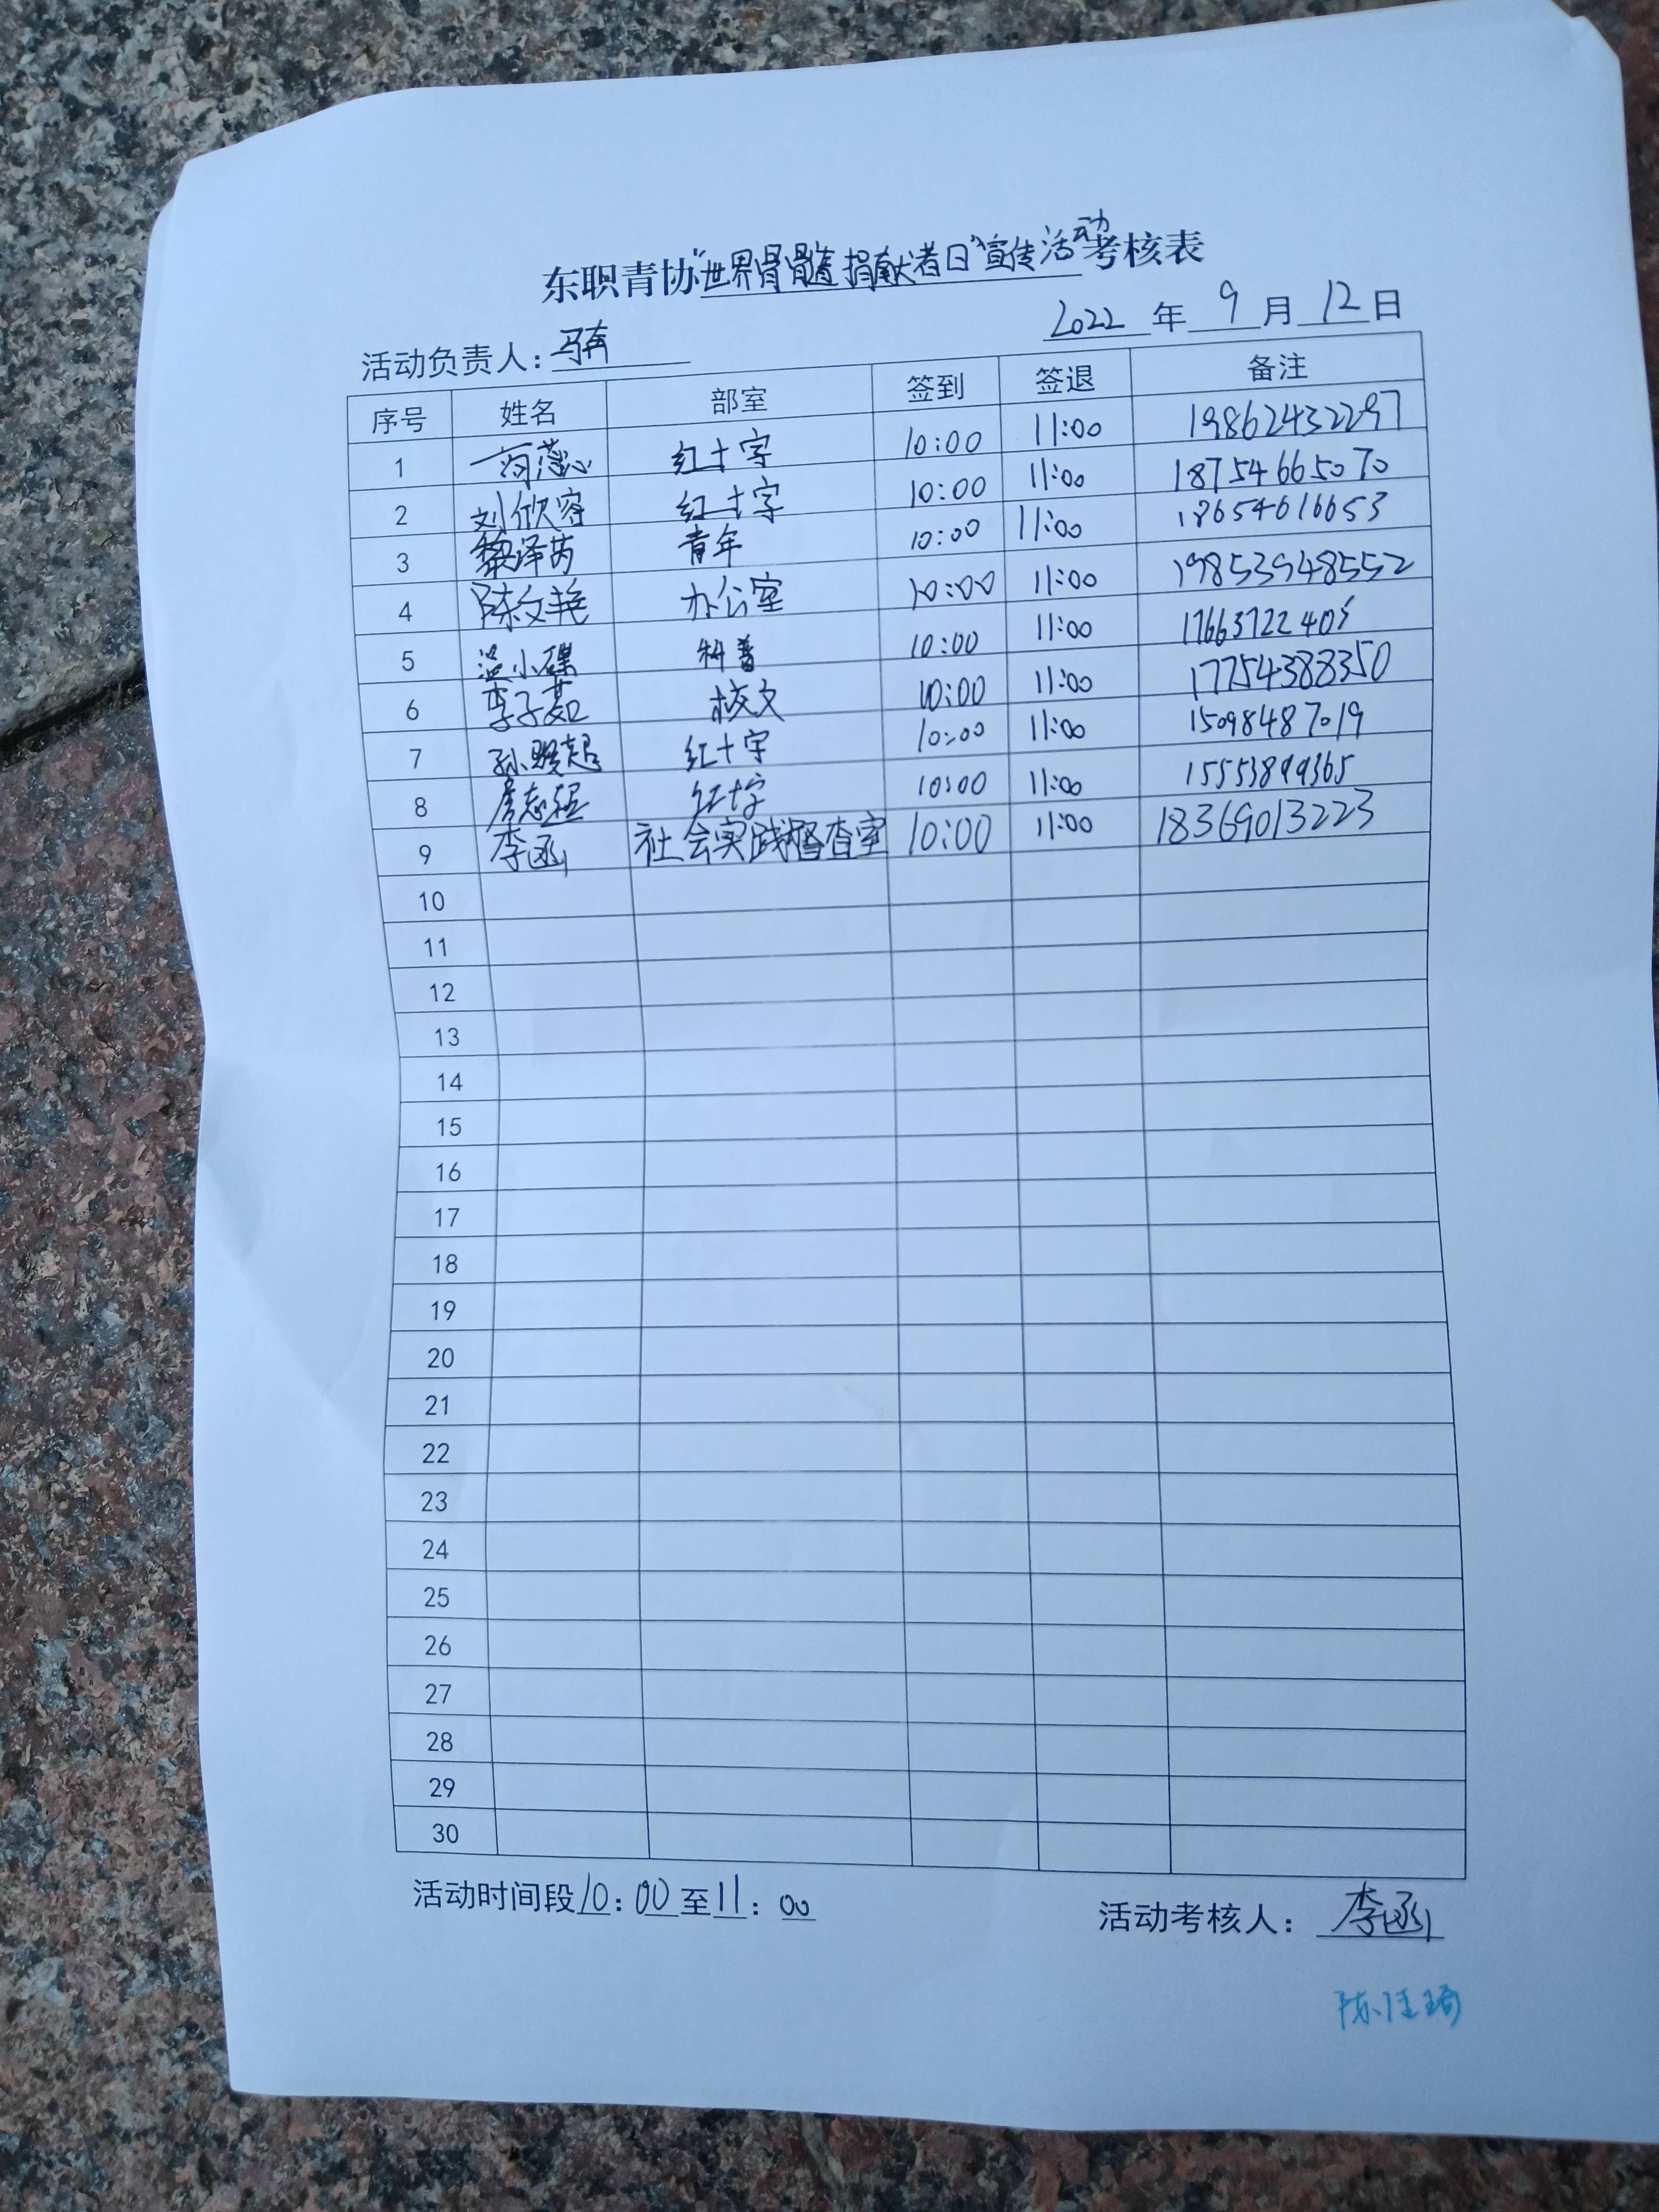 东职青协"世界骨髓捐献者日"宣传活动考核表
2022 年 9 月 12 日
活动负责人：冯冉
序号 姓名 部室 签到 签退 备注
1 红十字 10:00 11:00 19862432297
2 刘欣容 红十字 10:00 11:00 18754665070
3 黎泽芮 青年 10:00 11:00 18654616653
4 陈文艳 办公室 10:00 11:00 19853948552
5 小碟 科普 10:00 11:00 17663722405
6 李子茹 校文 10:00 11:00 17754388350
7 红十字 10:00 11:00 15098487019
8 红十字 10:00 11:00 15553899365
9 李函 社会实践督查室 10:00 11:00 18369013223
10
11
12
13
14
15
16
17
18
19
20
21
22
23
24
25
26
27
28
29
30
活动时间段10:00至11:00 活动考核人：李函
陈佳琦